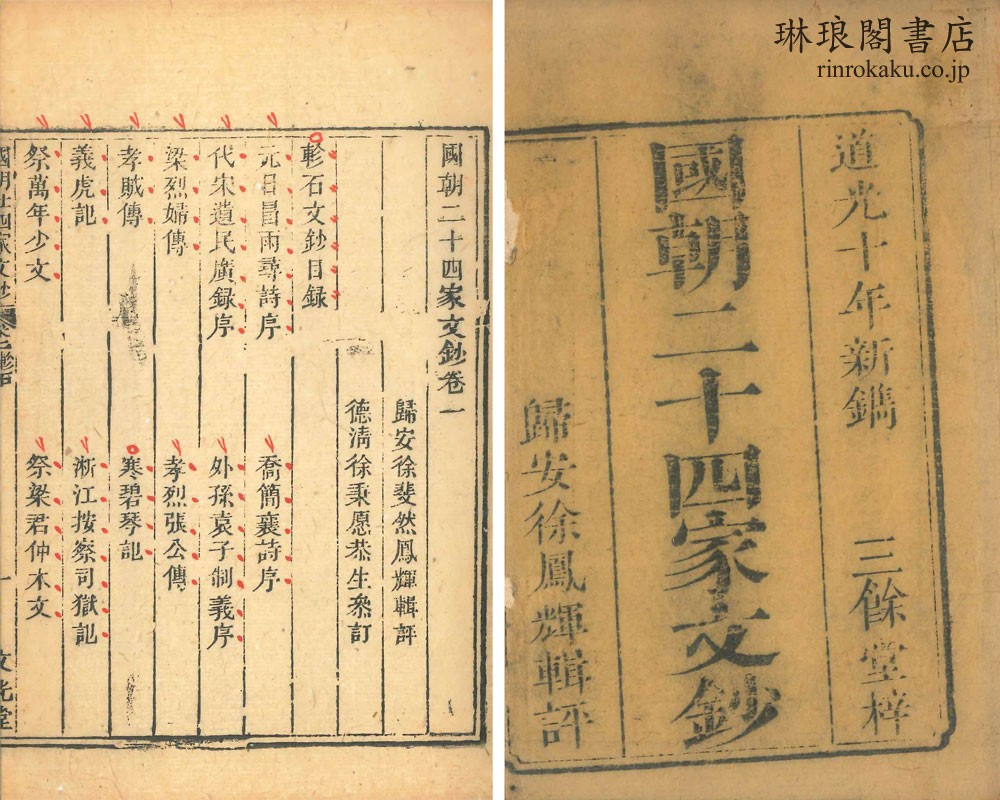 琳琅閣書店
rinrokaku.co.jp
道光十年新鐫 三餘堂梓
國朝二十四家文鈔
歸安徐鳳輝輯評
國朝二十四家文鈔卷一
歸安徐斐然鳳輝輯評
德淸徐秉愿恭生叅訂
軫石文鈔目录
元日冒雨尋詩序 喬簡襄詩序
代宋遺民廣録序 外孫袁子制義序
梁烈婦傳 孝烈張公傳
孝賊傳 寒碧琴記
義虎記 淅江按察司獄記
祭萬年少文 祭梁君仲木文
國朝廿四家文鈔 一 文光堂